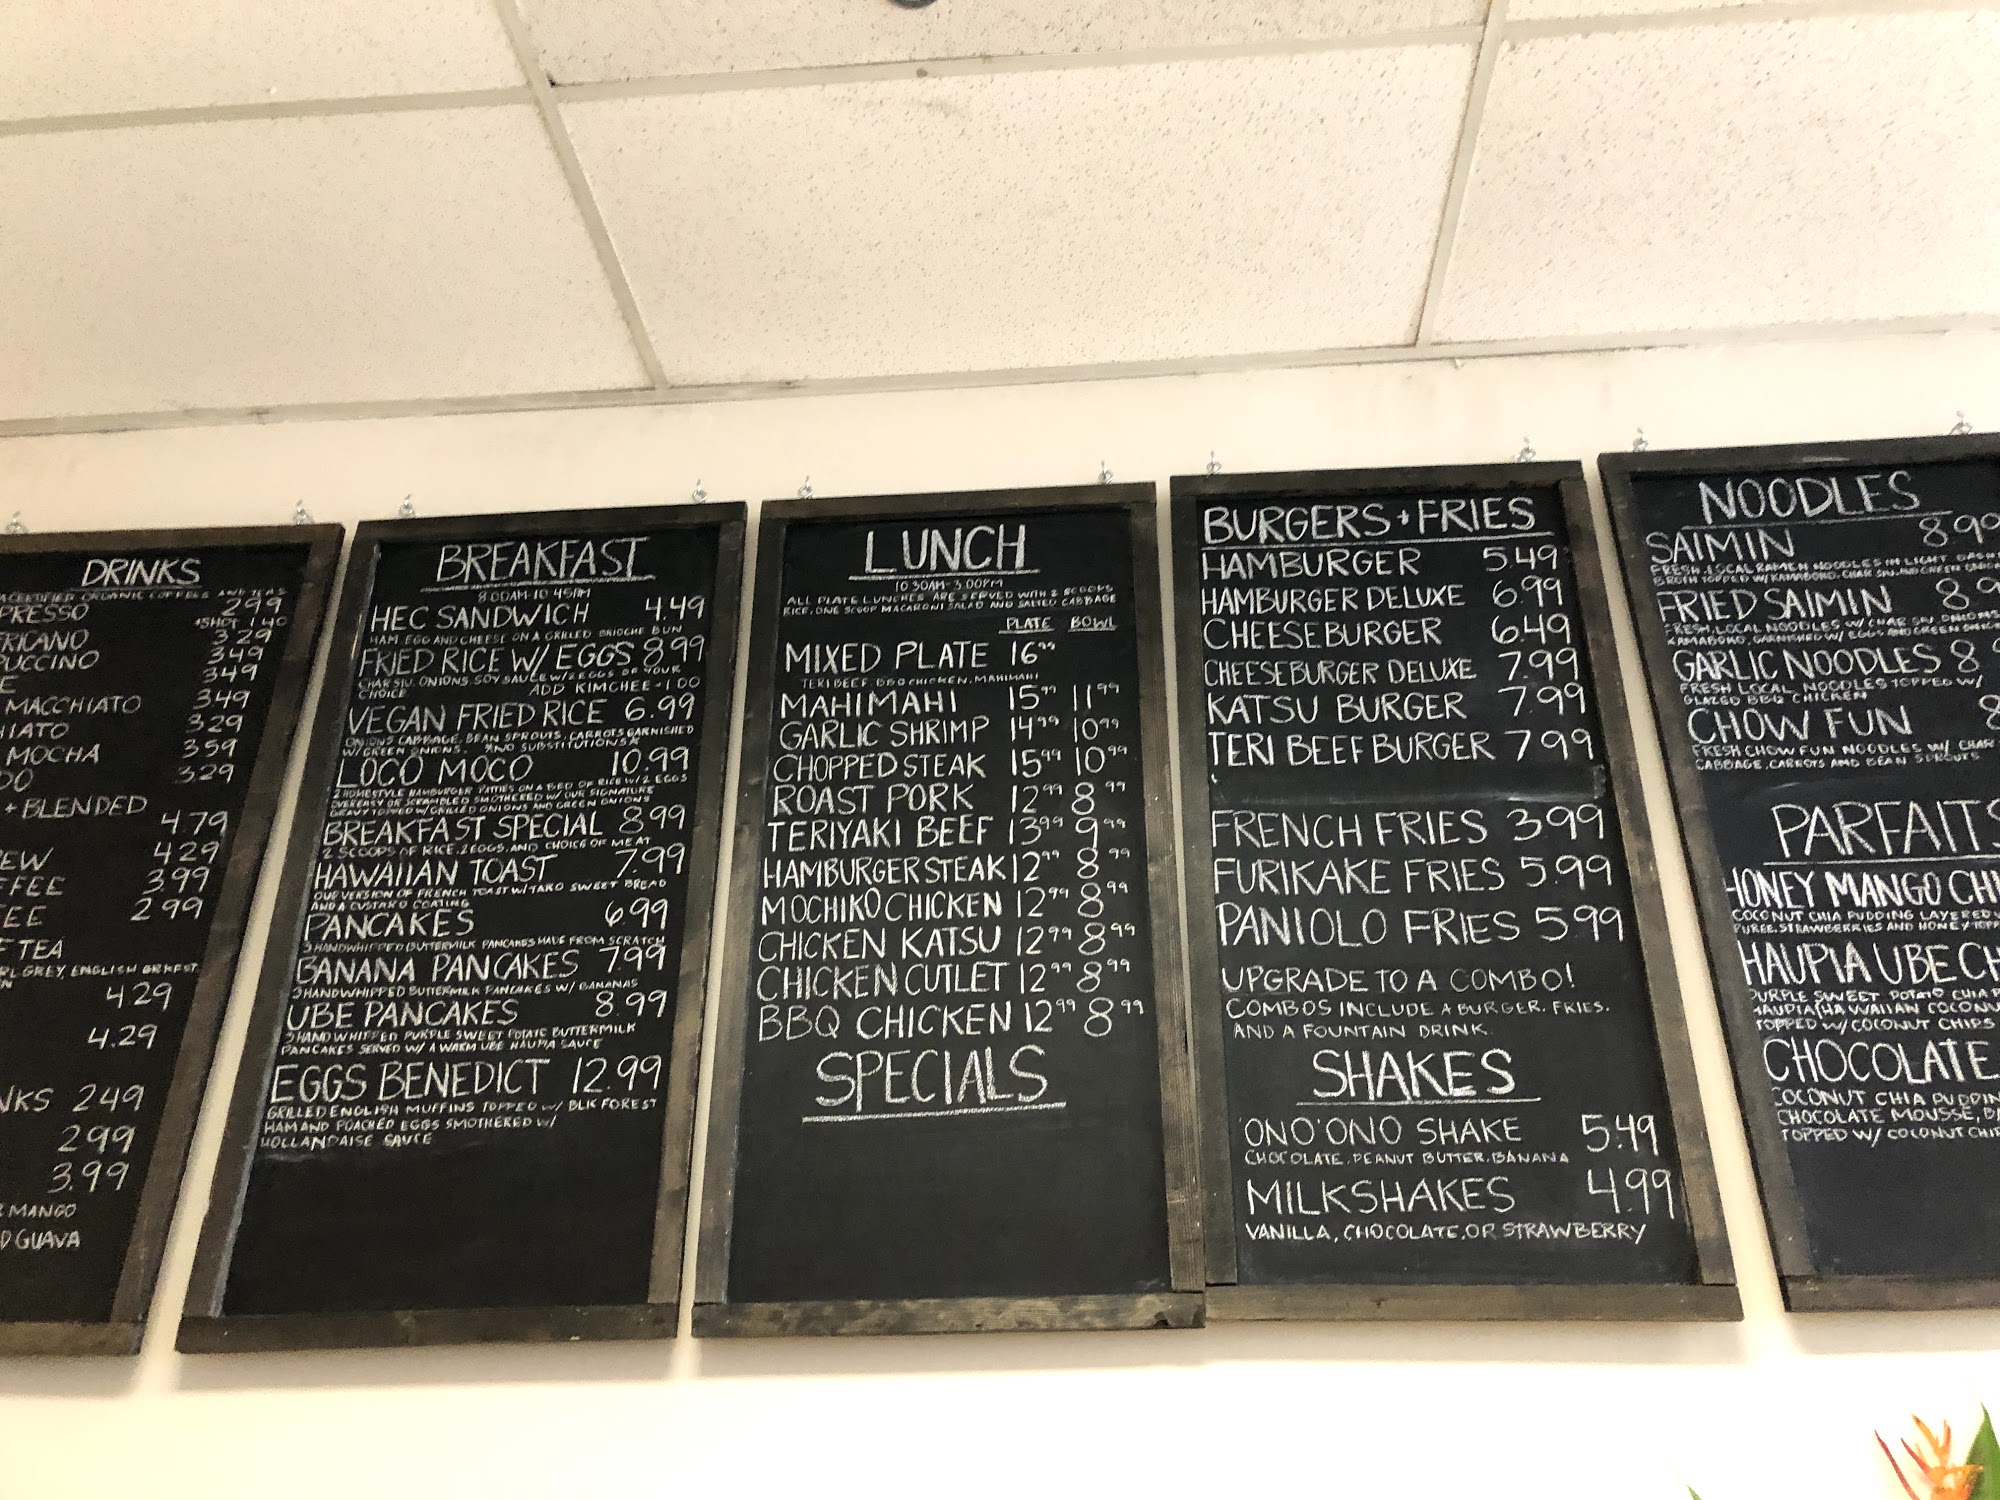 DRINKS
CERTIFIED ORGANIC COFFEES AND TEAS
PRESSO 2.99
+SHOT 1.40
RICANO 3.29
PUCCINO 3.49
E 3.49
MACCHIATO 3.49
IATO 3.29
MOCHA 3.59
DO 3.29
+ BLENDED
4.79
EW 4.29
FFEE 3.99
EE 2.99
F TEA
RL GREY, ENGLISH BRKFST
4.29
4.29
NKS 2.49
2.99
3.99
MANGO
D GUAVA
BREAKFAST
8:00AM-10:45AM
HEC SANDWICH 4.49
HAM, EGG AND CHEESE ON A GRILLED BRIOCHE BUN
FRIED RICE W/ EGGS 8.99
CHAR SIU, ONIONS, SOY SAUCE W/ 2 EGGS OF YOUR
CHOICE ADD KIMCHEE - 1.00
VEGAN FRIED RICE 6.99
ONIONS, CABBAGE, BEAN SPROUTS, CARROTS GARNISHED
W/ GREEN ONIONS. *NO SUBSTITUTIONS*
LOCO MOCO 10.99
2 HOMESTYLE HAMBURGER PATTIES ON A BED OF RICE W/ 2 EGGS
OVEREASY OR SCRAMBLED SMOTHERED W/ OUR SIGNATURE
GRAVY TOPPED W/ GRILLED ONIONS AND GREEN ONIONS
BREAKFAST SPECIAL 8.99
2 SCOOPS OF RICE, 2 EGGS, AND CHOICE OF MEAT
HAWAIIAN TOAST 7.99
OUR VERSION OF FRENCH TOAST W/ TARO SWEET BREAD
AND A CUSTARD COATING
PANCAKES 6.99
3 HANDWHIPPED BUTTERMILK PANCAKES MADE FROM SCRATCH
BANANA PANCAKES 7.99
3 HANDWHIPPED BUTTERMILK PANCAKES W/ BANANAS
UBE PANCAKES 8.99
3 HANDWHIPPED PURPLE SWEET POTATO BUTTERMILK
PANCAKES SERVED W/ A WARM UBE HAUPIA SAUCE
EGGS BENEDICT 12.99
GRILLED ENGLISH MUFFINS TOPPED W/ BLK FOREST
HAM AND POACHED EGGS SMOTHERED W/
HOLLANDAISE SAUCE
LUNCH
10:30AM-3:00PM
ALL PLATE LUNCHES ARE SERVED WITH 2 SCOOPS
RICE, ONE SCOOP MACARONI SALAD AND SALTED CABBAGE
PLATE BOWL
MIXED PLATE 16.99
TERI BEEF, BBQ CHICKEN, MAHIMAHI
MAHIMAHI 15.99 11.99
GARLIC SHRIMP 14.99 10.99
CHOPPED STEAK 15.99 10.99
ROAST PORK 12.99 8.99
TERIYAKI BEEF 13.99 9.99
HAMBURGER STEAK 12.99 8.99
MOCHIKO CHICKEN 12.99 8.99
CHICKEN KATSU 12.99 8.99
CHICKEN CUTLET 12.99 8.99
BBQ CHICKEN 12.99 8.99
SPECIALS
BURGERS + FRIES
HAMBURGER 5.49
HAMBURGER DELUXE 6.99
CHEESEBURGER 6.49
CHEESEBURGER DELUXE 7.99
KATSU BURGER 7.99
TERI BEEF BURGER 7.99
FRENCH FRIES 3.99
FURIKAKE FRIES 5.99
PANIOLO FRIES 5.99
UPGRADE TO A COMBO!
COMBOS INCLUDE A BURGER, FRIES,
AND A FOUNTAIN DRINK.
SHAKES
'ONO'ONO SHAKE 5.49
CHOCOLATE, PEANUT BUTTER, BANANA
MILKSHAKES 4.99
VANILLA, CHOCOLATE, OR STRAWBERRY
NOODLES
SAIMIN 8.99
FRESH, LOCAL RAMEN NOODLES IN LIGHT DASHI
BROTH TOPPED W/ KAMABOKO, CHAR SIU, AND GREEN ONIONS
FRIED SAIMIN 8.9
FRESH, LOCAL NOODLES W/ CHAR SIU, ONIONS
KAMABOKO, GARNISHED W/ EGGS AND GREEN ONIONS
GARLIC NOODLES 8
FRESH LOCAL NOODLES TOPPED W/
GLAZED BBQ CHICKEN
CHOW FUN 8
FRESH CHOW FUN NOODLES W/ CHAR
CABBAGE, CARROTS AND BEAN SPROUTS
PARFAITS
HONEY MANGO CHI
COCONUT CHIA PUDDING LAYERED
PUREE, STRAWBERRIES AND HONEY TOPP
HAUPIA UBE CH
PURPLE SWEET POTATO CHIA P
HAUPIA (HAWAIIAN COCONU
TOPPED W/ COCONUT CHIPS
CHOCOLATE
COCONUT CHIA PUDDIN
CHOCOLATE MOUSSE, BA
TOPPED W/ COCONUT CHIP